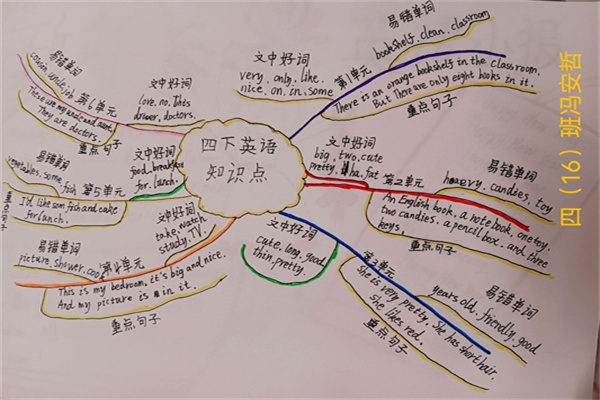 四下英语
知识点
四（16）班冯安哲
易错单词
bookshelf. clean. classroom
第1单元
There is an orange bookshelf in the classroom.
But There are only eight books in it.
重点句子
文中好词
very. only. like.
nice. on. in. some
文中好词
big. two. cute
pretty. ha. fat
易错单词
heavy. candies. toy
第2单元
An English book. a note book. one toy.
two candies. a pencil box. and three
keys.
重点句子
易错单词
years old. friendly. good
第3单元
She is very pretty. She has short hair.
she likes red.
重点句子
文中好词
cute. long. good.
thin. pretty.
文中好词
take. watch
stady. TV.
易错单词
picture. shower. coo
第4单元
This is my bedroom. it's big and nice.
And my picture is in it.
重点句子
文中好词
food. breakfast
for. lunch.
易错单词
vegetables. some. fish
第五单元
I'd like som fish and cake
for lunch.
文中好词
love. no. this
driver. doctors.
易错单词
cousin. uncle. job
第6单元
These are my uncle and aunt.
They are doctors.
重点句子